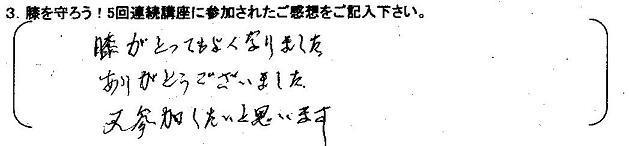 3. 膝を守ろう！5回連続講座に参加されたご感想をご記入下さい。
膝がとってもよくなりました
ありがとうございました
又参加したいと思います